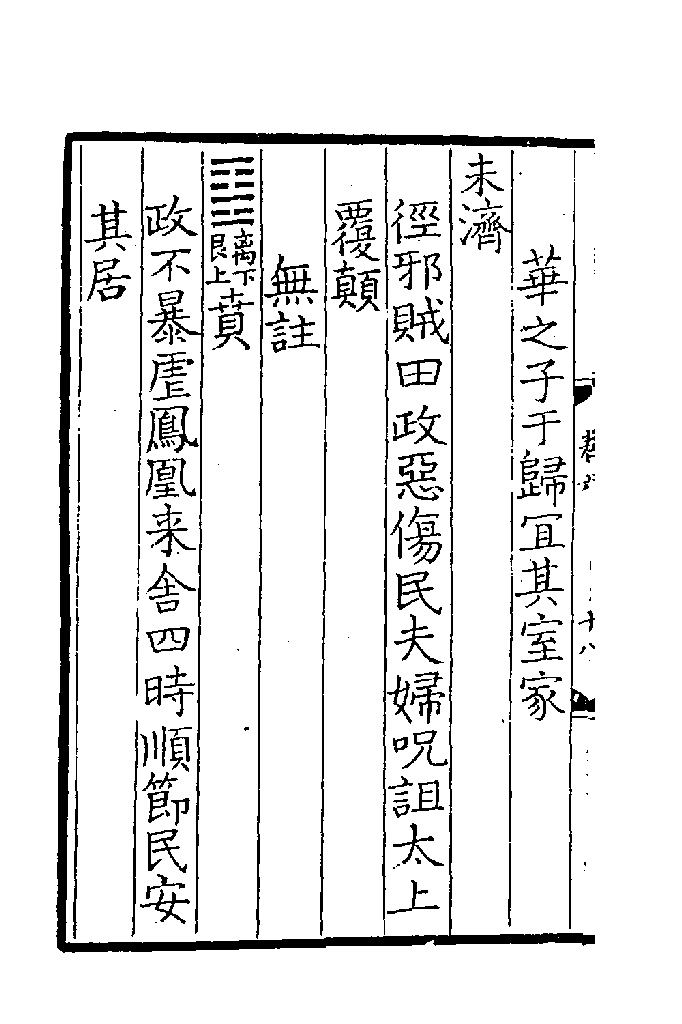 華之子于歸冝其室家
未濟
徑邪賊田政惡傷民夫婦呪詛太上
覆顛
無註
䷕离下艮上賁
政不暴虐鳳凰来舍四時順節民安
其居